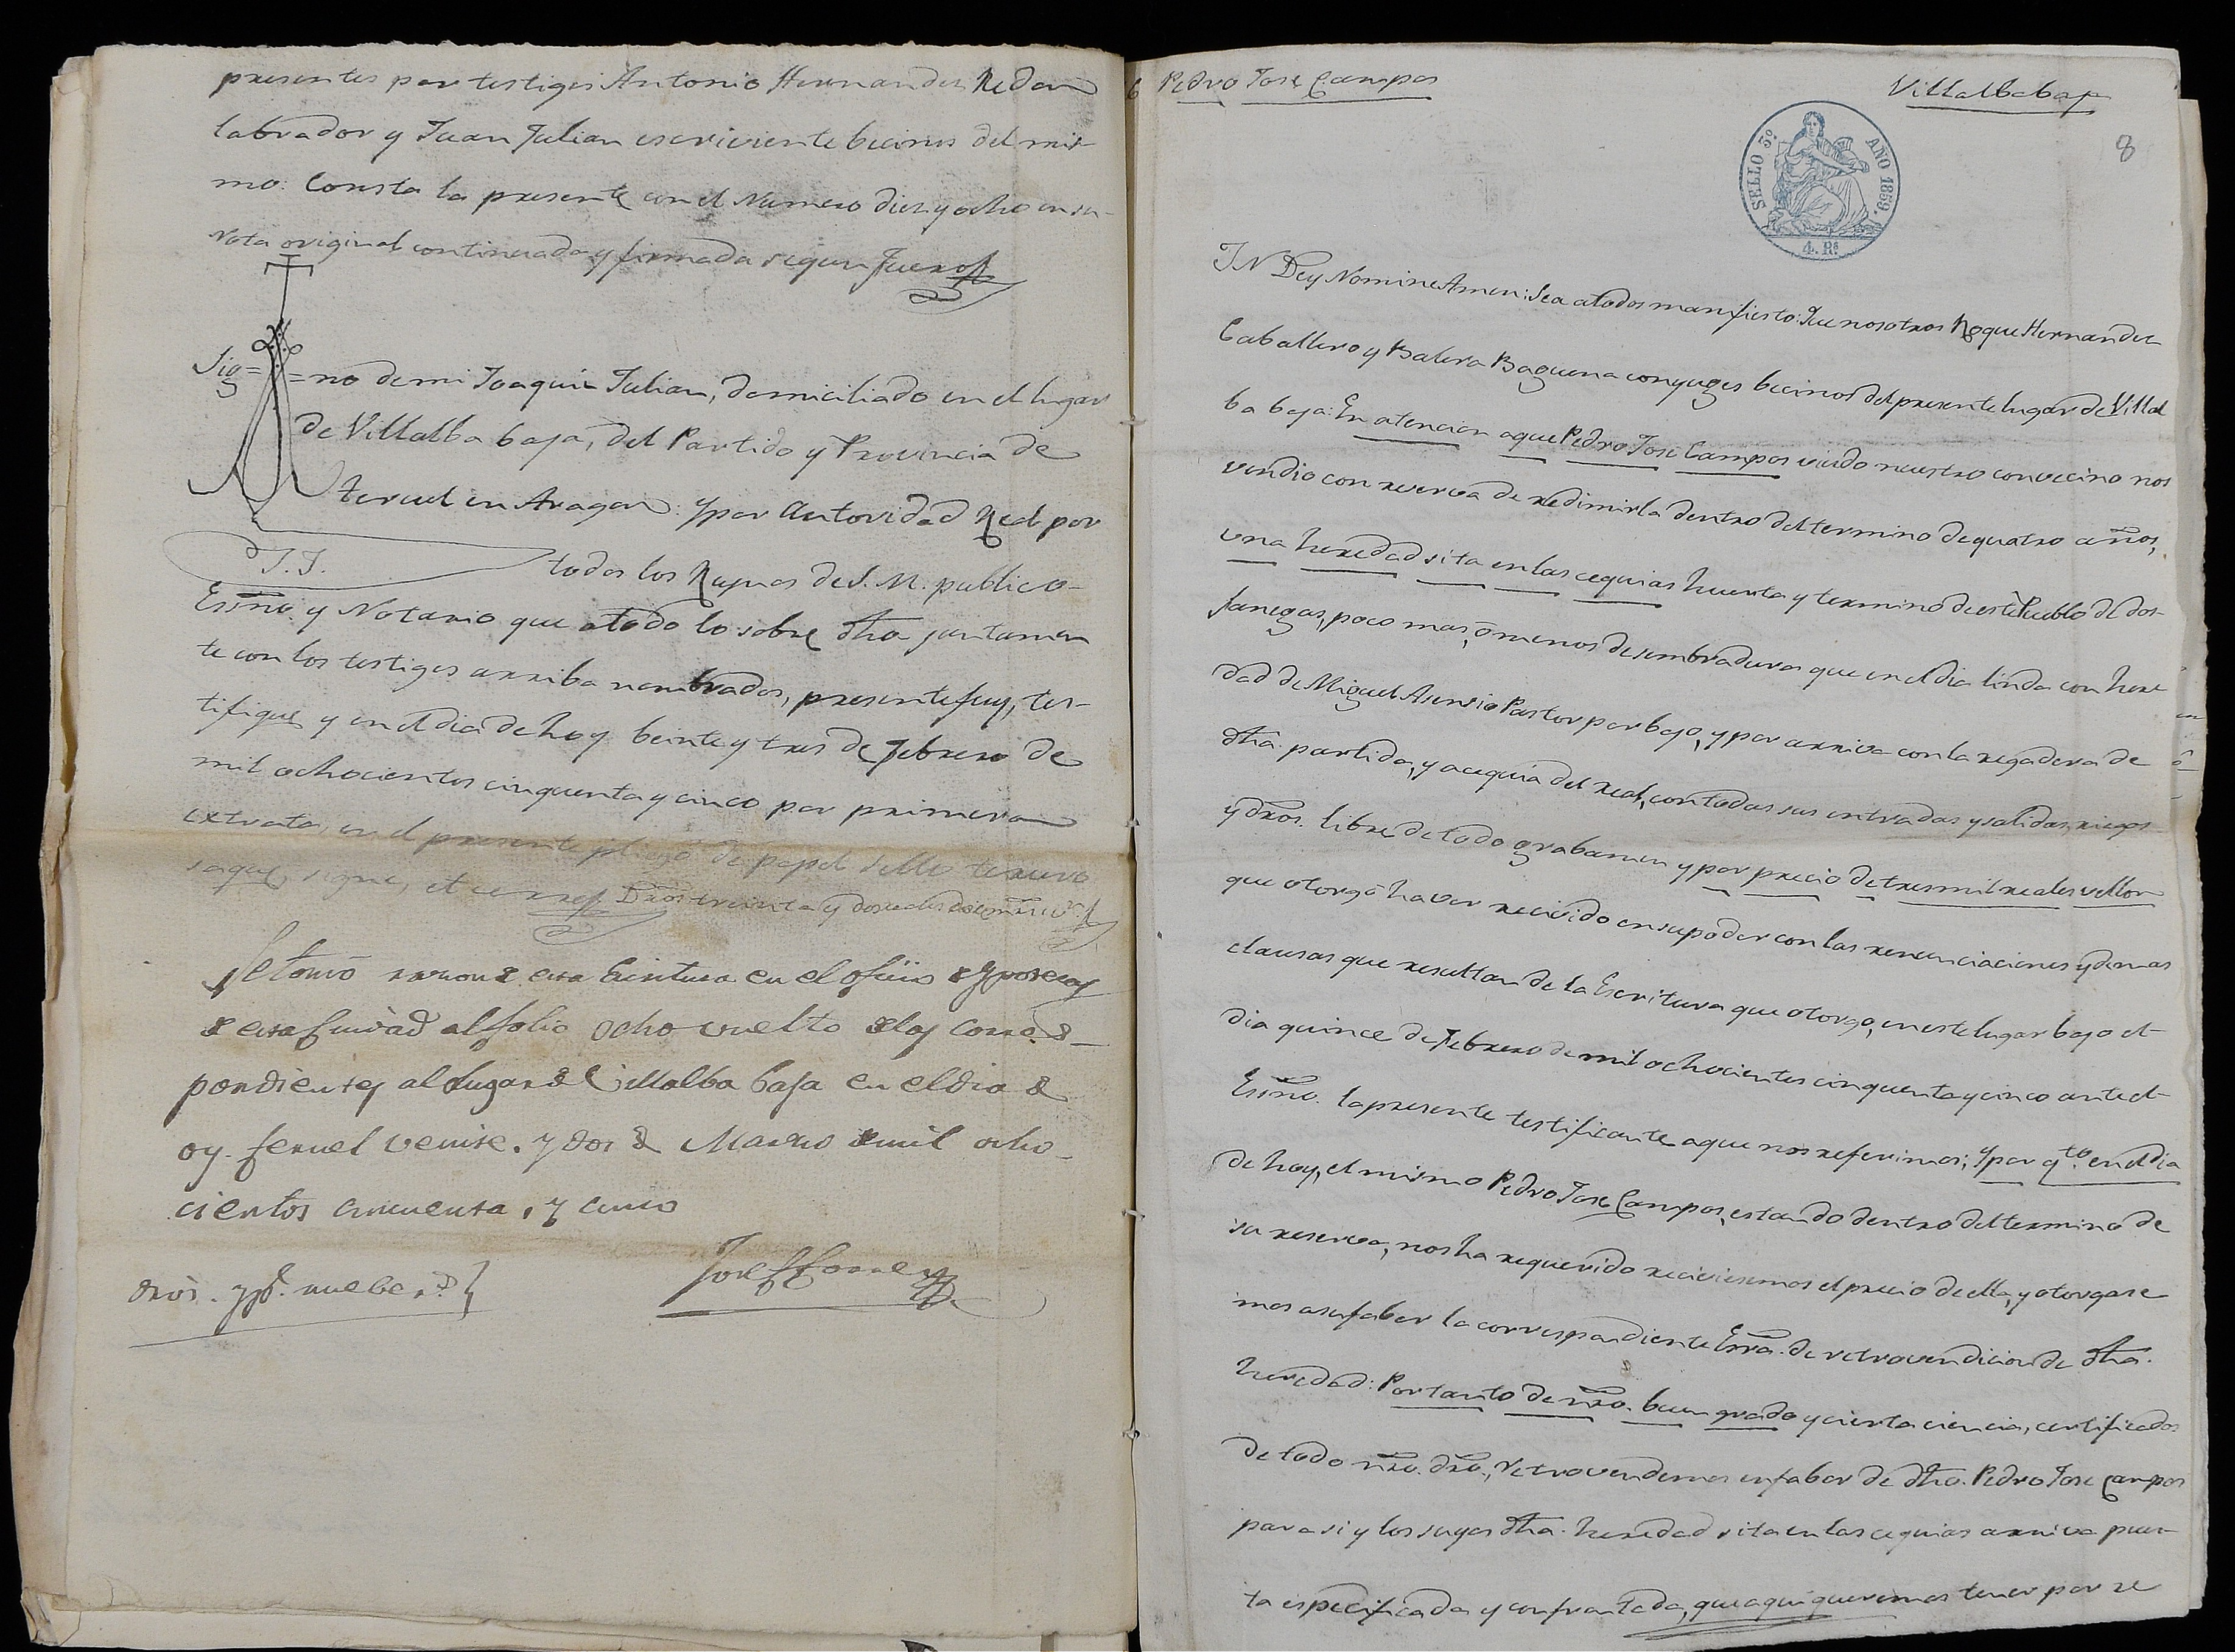 presentes por testigos Antonio Hernandez Redon
labrador y Juan Julian escriviente becinos del mis-
mo: Consta la presente con el Numero diez y ocho en su-
nota original continuada y firmada segun fuero
Sig= =no de mi Joaquin Julian, domiciliado en el lugar
de Villalba baja, del Partido y Provincia de
Teruel en Aragon: y por Autoridad Real por
J. J. todos los Reynos de S. M. publico-
Essno. y Notario que a todo lo sobre dho juntamen
te con los testigos arriba nombrados, presente fuy, tes-
tifique y en el dia de hoy beinte y tres de febrero de
mil ochocientos cinquenta y cinco por primera
extracta, en el presente pliego de papel sello tercero
saque, signe, et cerre Dros treinta y dos
Se tomó razon de esta Escritura en el oficio de Ypotecas
de esta Ciudad al folio ocho vuelto de los corres-
pondientes al Lugar de Villalba baja en el dia de
oy. Teruel veinte. y dos de Marzo de mil ocho-
cientos cincuenta, y cinco
dros. y pl. nuebe rs.
Jose Torres
6 Pedro Jose Campos Villalbabaja
8
SELLO 3º AÑO 1859.
4. Rs
IN Dey Nomine Amen: Sea a todos manifiesto: Que nosotros Roque Hernandez
Caballero y Balera Baguena conyuges becinos del presente lugar de Villal
ba baja: En atencion a que Pedro Jose Campos viudo nuestro convecino nos
vendio con reserva de redimirla dentro del termino de quatro años,
una heredad sita en las cequias huerta y termino de este Pueblo de dos-
fanegas, poco mas, ó menos de sembradura que en el dia linda con here
dad de Miguel Asensio Pastor por bajo, y por arriva con la regadera de
dha. partida, y acequia del real, con todas sus entradas y salidas, riegos
y dros. libre de todo grabamen y por precio de tres mil reales vellon
que otorgó haver recivido en su poder con las renunciaciones y demas
clausas que resultan de la Escritura que otorgo, en este lugar bajo el-
dia quince de febrero de mil ochocientos cinquenta y cinco ante el-
Essno. la presente testificante a que nos referimos; y por qto. en el dia
de hoy, el mismo Pedro Jose Campos, estando dentro del termino de
su reserva, nos ha requerido reciviesemos el precio de ella, y otorgase
mos a su fabor la correspondiente Essra. de retrovendicion de dha.
heredad: Por tanto de nro. buen grado y cierta ciencia, certificados
de todo nro. dro., Retrovendemos en fabor de dho. Pedro Jose Campos
para si y los suyos dha. heredad sita en las cequias arriva pues-
ta especificada y confrontada, que aqui queremos tener por re